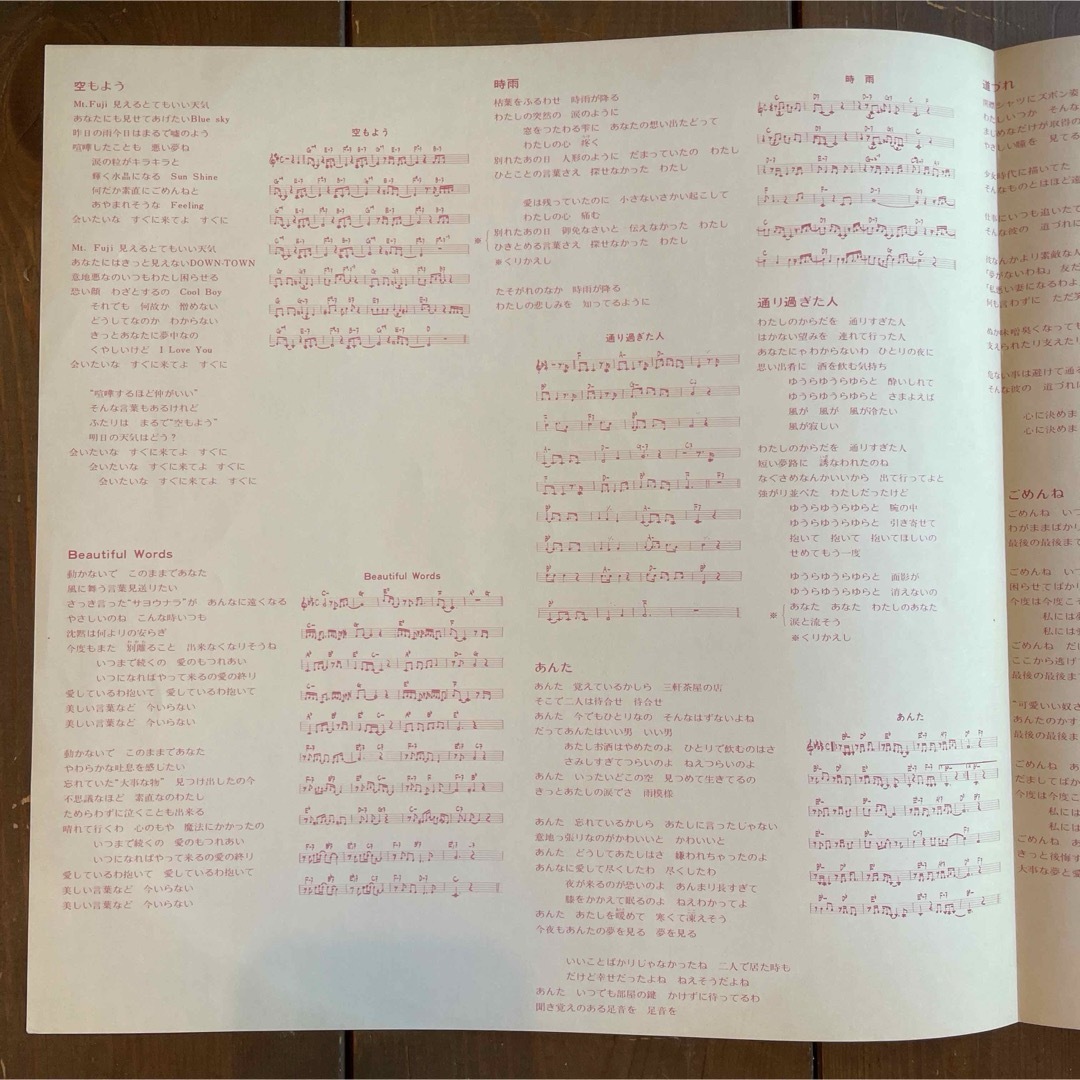 空もよう
Mt.Fuji 見えるとてもいい天気
あなたにも見せてあげたいBlue sky
昨日の雨今日はまるで嘘のよう
喧嘩したことも 悪い夢ね
涙の粒がキラキラと
輝く水晶になる Sun Shine
何だか素直にごめんねと
あやまれそうな Feeling
会いたいな すぐに来てよ すぐに
Mt. Fuji 見えるとてもいい天気
あなたにはきっと見えないDOWN-TOWN
意地悪なのいつもわたし困らせる
恐い顔 わざとするの Cool Boy
それでも 何故か 憎めない
どうしてなのか わからない
きっとあなたに夢中なの
くやしいけど I Love You
会いたいな すぐに来てよ すぐに
“喧嘩するほど仲がいい”
そんな言葉もあるけれど
ふたりは まるで“空もよう”
明日の天気はどう？
会いたいな すぐに来てよ すぐに
会いたいな すぐに来てよ すぐに
会いたいな すぐに来てよ すぐに
空もよう
Beautiful Words
動かないで このままであなた
風に舞う言葉見送りたい
さっき言った“サヨウナラ”が あんなに遠くなる
やさしいのね こんな時いつも
沈黙は何よりの安らぎ
今度もまた 別離ること 出来なくなりそうね
いつまで続くの 愛のもつれあい
いつになればやって来るの愛の終り
愛しているわ抱いて 愛しているわ抱いて
美しい言葉など 今いらない
美しい言葉など 今いらない
動かないで このままであなた
やわらかな吐息を感じたい
忘れていた“大事な物” 見つけ出したの今
不思議なほど 素直なのわたし
ためらわずに泣くことも出来る
晴れて行くわ 心のもや 魔法にかかったの
いつまで続くの 愛のもつれあい
いつになればやって来るの愛の終り
愛しているわ抱いて 愛しているわ抱いて
美しい言葉など 今いらない
美しい言葉など 今いらない
Beautiful Words
時雨
枯葉をふるわせ 時雨が降る
わたしの突然の 涙のように
窓をつたわる雫に あなたの想い出たどって
わたしの心 疼く
別れたあの日 人形のように だまっていたの わたし
ひとことの言葉さえ 探せなかった わたし
愛は残っていたのに 小さないさかい起こして
わたしの心 痛む
別れたあの日 御免なさいと 伝えなかった わたし
ひきとめる言葉さえ 探せなかった わたし
※くりかえし
たそがれのなか 時雨が降る
わたしの悲しみを 知ってるように
時雨
通り過ぎた人
通り過ぎた人
わたしのからだを 通りすぎた人
はかない望みを 連れて行った人
あなたにゃわからないわ ひとりの夜に
思い出肴に 酒を飲む気持ち
ゆうらゆうらゆらと 酔いしれて
ゆうらゆうらゆらと さまよえば
風が 風が 風が冷たい
風が寂しい
わたしのからだを 通りすぎた人
短い夢路に 誘なわれたのね
なぐさめなんかいいから 出て行ってよと
強がり並べた わたしだったけど
ゆうらゆうらゆらと 腕の中
ゆうらゆうらゆらと 引き寄せて
抱いて 抱いて 抱いてほしいの
せめてもう一度
ゆうらゆうらゆらと 面影が
ゆうらゆうらゆらと 消えないの
※ あなた あなた わたしのあなた
涙と流そう
※くりかえし
あんた
あんた 覚えているかしら 三軒茶屋の店
そこで二人は待合せ 待合せ
あんた 今でもひとりなの そんなはずないよね
だってあんたはいい男 いい男
あたしお酒はやめたのよ ひとりで飲むのはさ
さみしすぎてつらいのよ ねえつらいのよ
あんた いったいどこの空 見つめて生きてるの
きっとあたしの涙でさ 雨模様
あんた 忘れているかしら あたしに言ったじゃない
意地っ張りなのがかわいいと かわいいと
あんた どうしてあたしはさ 嫌われちゃったのよ
あんなに愛して尽くしたわ 尽くしたわ
夜が来るのが恐いのよ あんまり長すぎて
膝をかかえて眠るのよ ねえわかってよ
あんた あたしを暖めて 寒くて凍えそう
今夜もあんたの夢を見る 夢を見る
いいことばかりじゃなかったね 二人で居た時も
だけど幸せだったよね ねえそうだよね
あんた いつでも部屋の鍵 かけずに待ってるわ
聞き覚えのある足音を 足音を
あんた
道づれ
シャツにズボン姿
少女時代に描いてた
そんなものとはほど遠
ごめんね
ごめんね いつ
わがままばかり
最後の最後まで
ごめんね いつ
困らせてばかり
今度は今度こそ
私には夢
私にはも
ごめんね だけ
ここから逃げ
最後の最後まで
“可愛いい奴さ
あんたのかす
最後の最後ま
ごめんね あ
だましてばか
今度は今度こ
私には
私には
ごめんね あ
きっと後悔す
大事な夢と愛